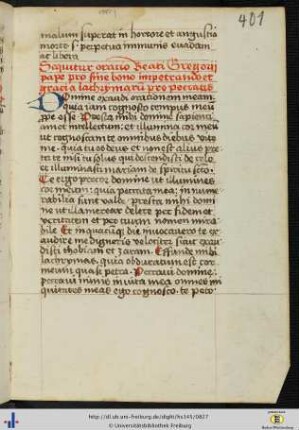 401
malum superat in horrore et angustia
mortis et perpetua immunis euadam
ac libera
Sequitur oratio Beati Gregorij
pape pro fine bono impetrando et
gracia lachrymarum pro peccatis
Domine exaudi orationem meam
quia iam cognosco tempus meum
prope esse Presta mihi domine sapientiam
et intellectum et illumina cor meum
ut cognoscam te omnibus diebus vite
me quia tu es deus et non est alius preter
te nisi tu solus qui descendisti de celo
et illuminasti mariam de spiritu sancto
Te ergo precor domine ut illumines
cor meum quia peccata mea in nume
rabilia sunt valde presta mihi domi
ne ut illa merear delere per fidem et
veritatem et per tuum nomen mirabile
Et in quacumque die inuocauero te
audire me digneris velociter sicut exau
disti et Effunde mihi
lachrymas quia obduratum est cor
meum quasi petra Peccaui domine
peccaui nimis in vita mea omnes ini
quitates meas ego cognosco te peto
http://dl.ub.uni-freiburg.de/diglit/hs345/0827
© Universitätsbibliothek Freiburg